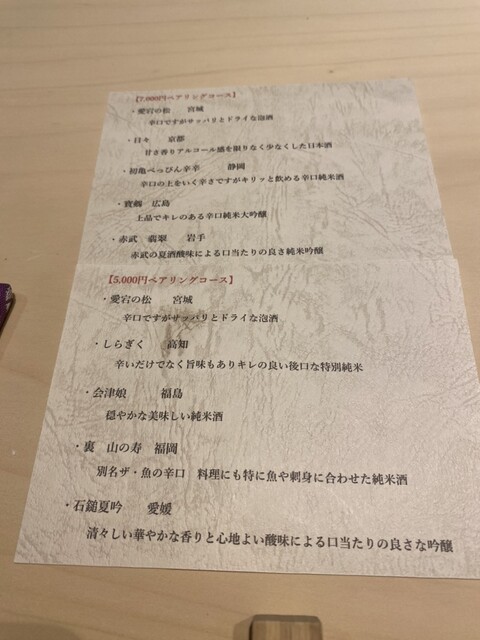 【7,000円ペアリングコース】
・愛宕の松　宮城
辛口ですがサッパリとドライな泡酒
・日々　京都
甘さ香りアルコール感を限りなく少なくした日本酒
・初亀べっぴん辛辛　静岡
辛口の上をいく辛さですがキリッと飲める辛口純米酒
・寳剱　広島
上品でキレのある辛口純米大吟醸
・赤武　翡翠　岩手
赤武の夏酒酸味による口当たりの良さ純米吟醸
【5,000円ペアリングコース】
・愛宕の松　宮城
辛口ですがサッパリとドライな泡酒
・しらぎく　高知
辛いだけでなく旨味もありキレの良い後口な特別純米
・会津娘　福島
穏やかな美味しい純米酒
・裏　山の寿　福岡
別名ザ・魚の辛口　料理にも特に魚や刺身に合わせた純米酒
・石鎚夏吟　愛媛
清々しい華やかな香りと心地よい酸味による口当たりの良さな吟醸